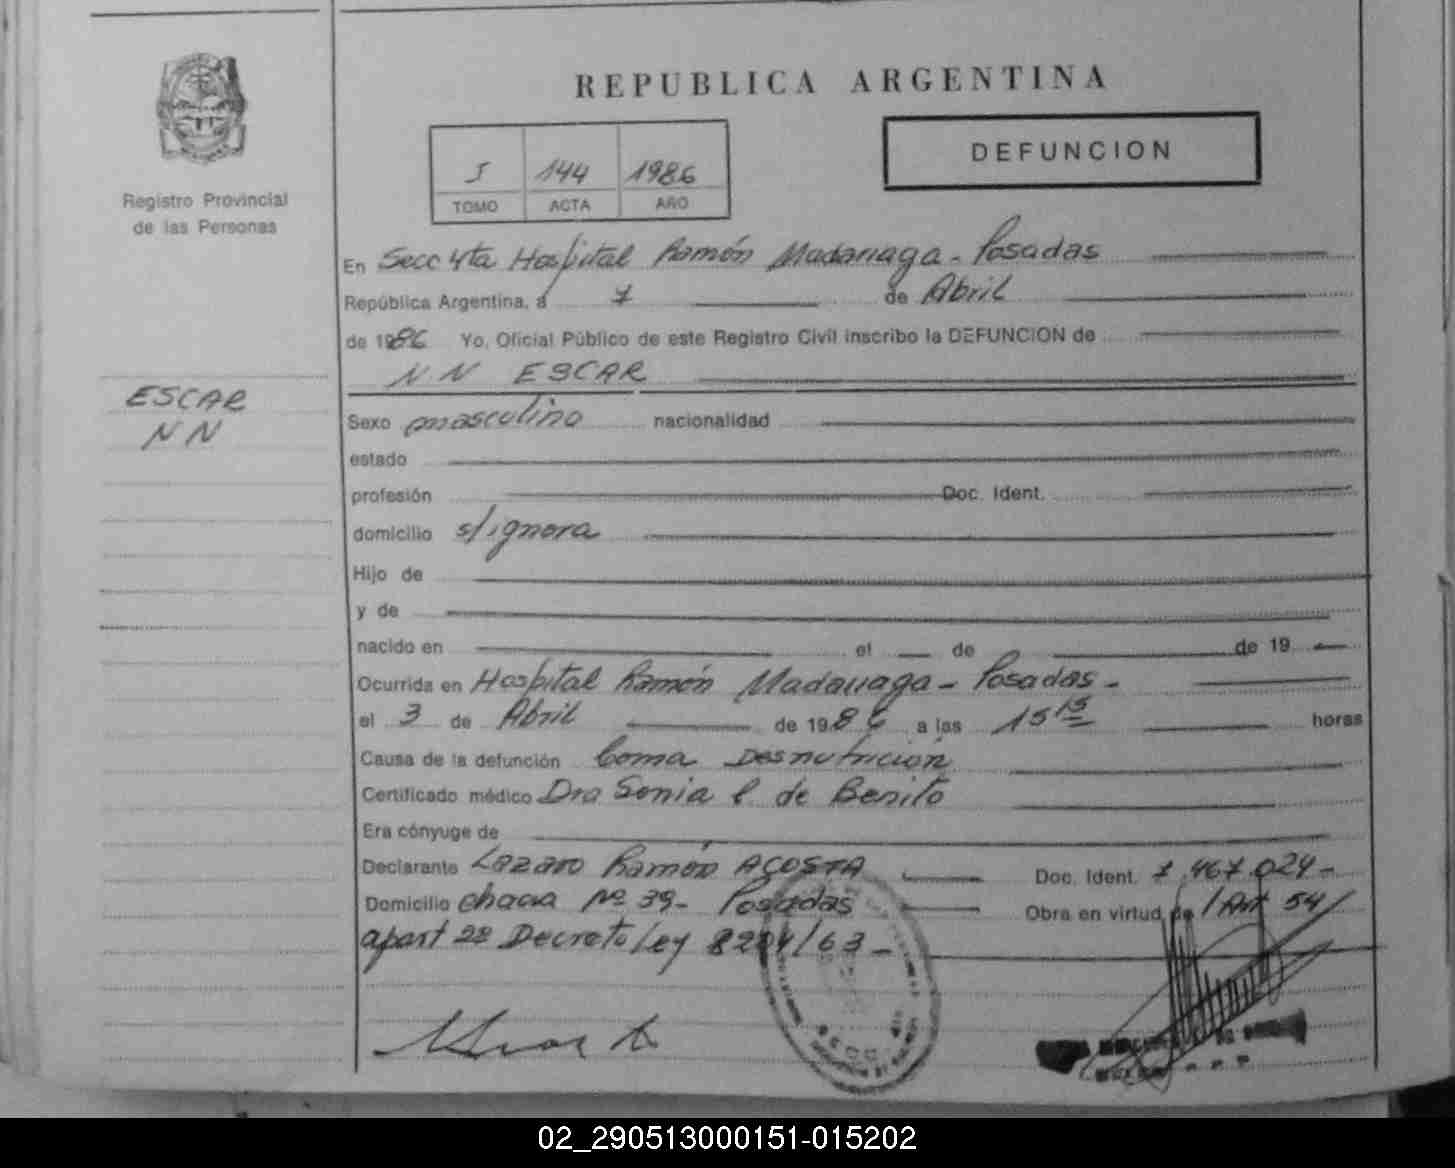 REPUBLICA ARGENTINA
DEFUNCION
I 144 1986
TOMO ACTA AÑO
Registro Provincial
de las Personas
En Secc 4ta Hospital Ramón Madariaga - Posadas
República Argentina, a 7 de Abril
de 1986 Yo, Oficial Público de este Registro Civil inscribo la DEFUNCION de
NN ESCAR
ESCAR
NN
Sexo masculino nacionalidad
estado
profesión Doc. Ident.
domicilio s/ignora
Hijo de
y de
nacido en el de de 19
Ocurrida en Hospital Ramón Madariaga - Posadas -
el 3 de Abril de 1986 a las 15 15 horas
Causa de la defunción Coma Desnutrición
Certificado médico Dra Sonia C. de Benito
Era cónyuge de
Declarante Lazaro Ramón ACOSTA Doc. Ident. 7.467.024-
Domicilio chacra Nº 39- Posadas Obra en virtud de /Art 54/
apart 2º Decreto Ley 8204/63-
02_290513000151-015202